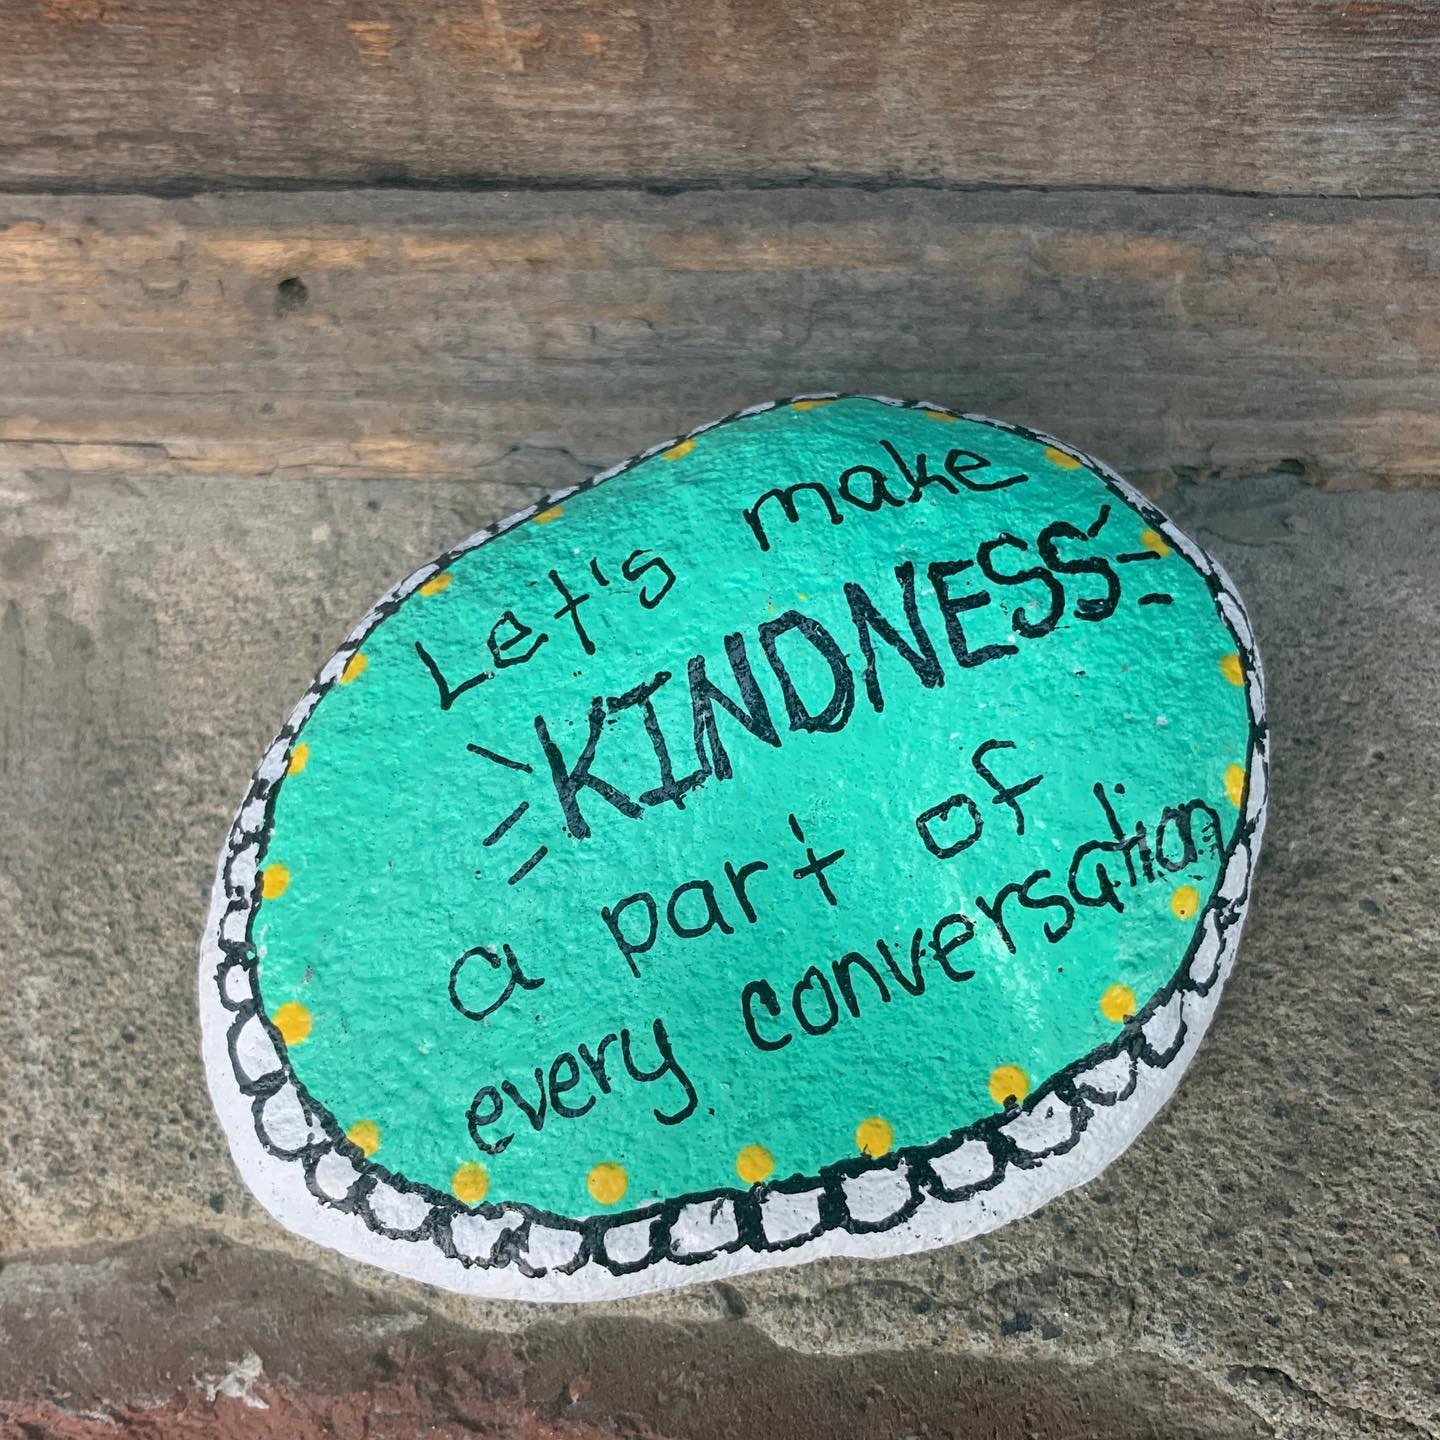 Let's make
KINDNESS
a part of
every conversation